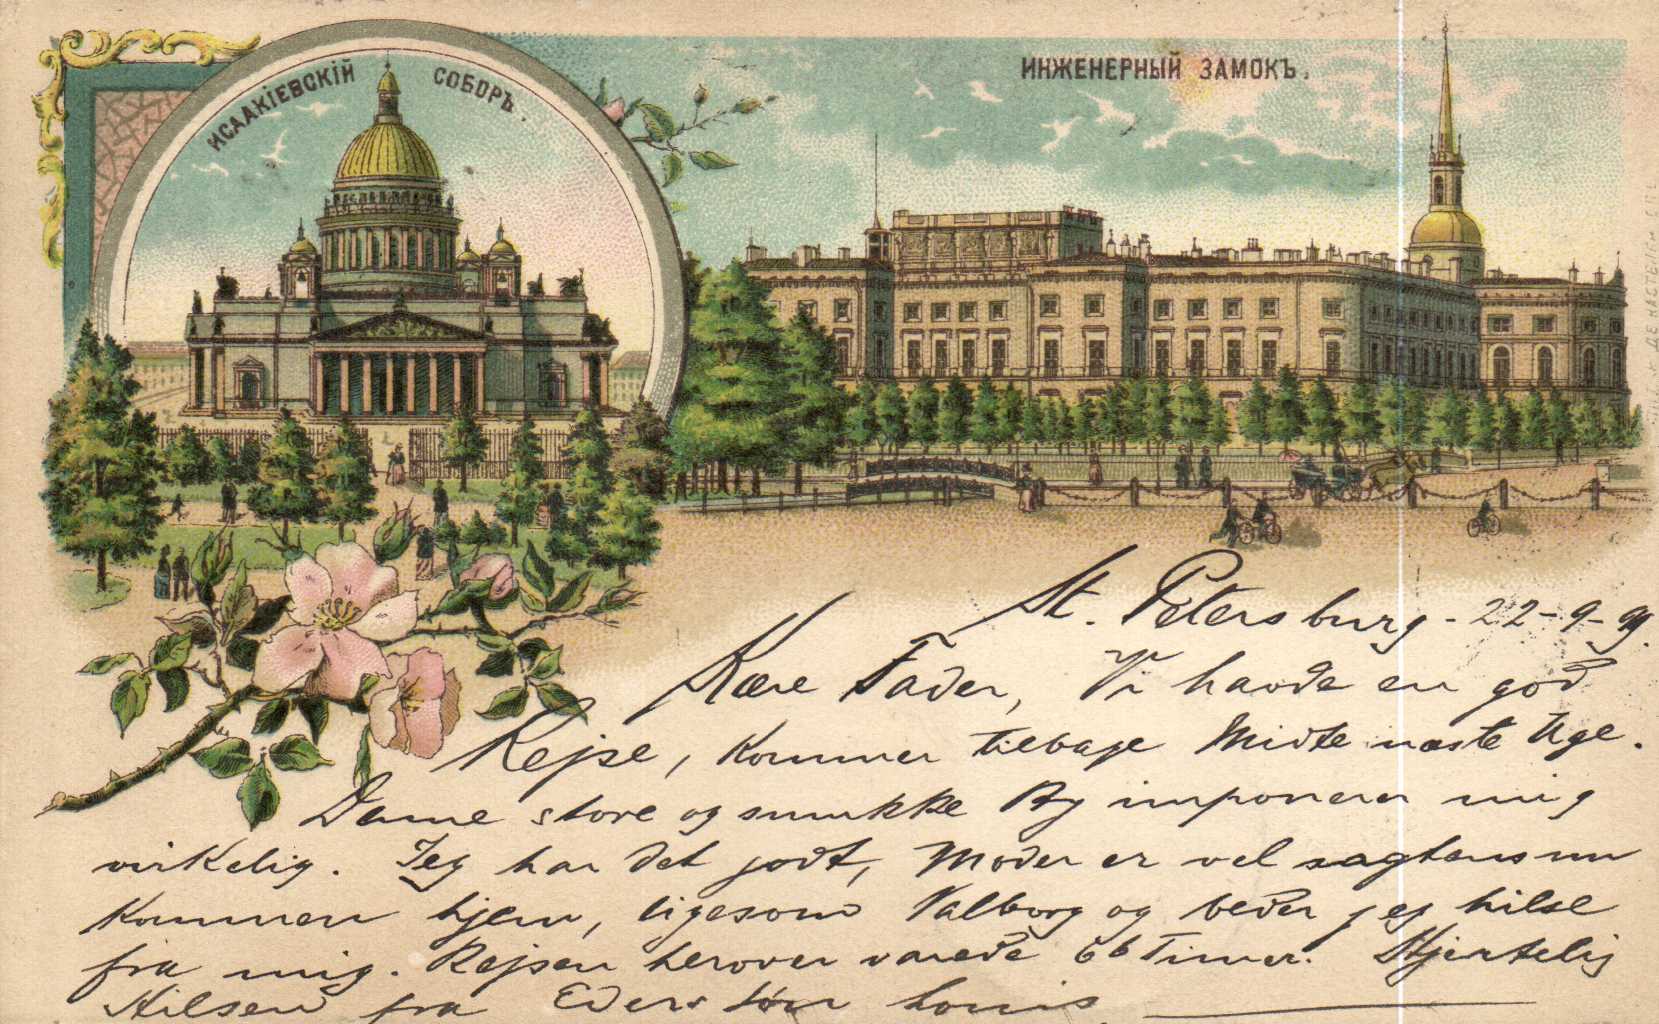 ИСААКІЕВСКІЙ СОБОРЪ.
ИНЖЕНЕРНЫЙ ЗАМОКЪ.
St. Petersburg - 22-9-99.
Kære Fader, Vi havde en god
Rejse, kommer tilbage Midte næste Uge.
Denne store og smukke By imponerer mig
virkelig. Jeg har det godt, Moder er vel sagtens nu
kommen hjem, ligesom Valborg og beder jeg hilse
fra mig. Rejsen herover varede 66 Timer. Hjertelig
Hilsen fra Eders søn Louis